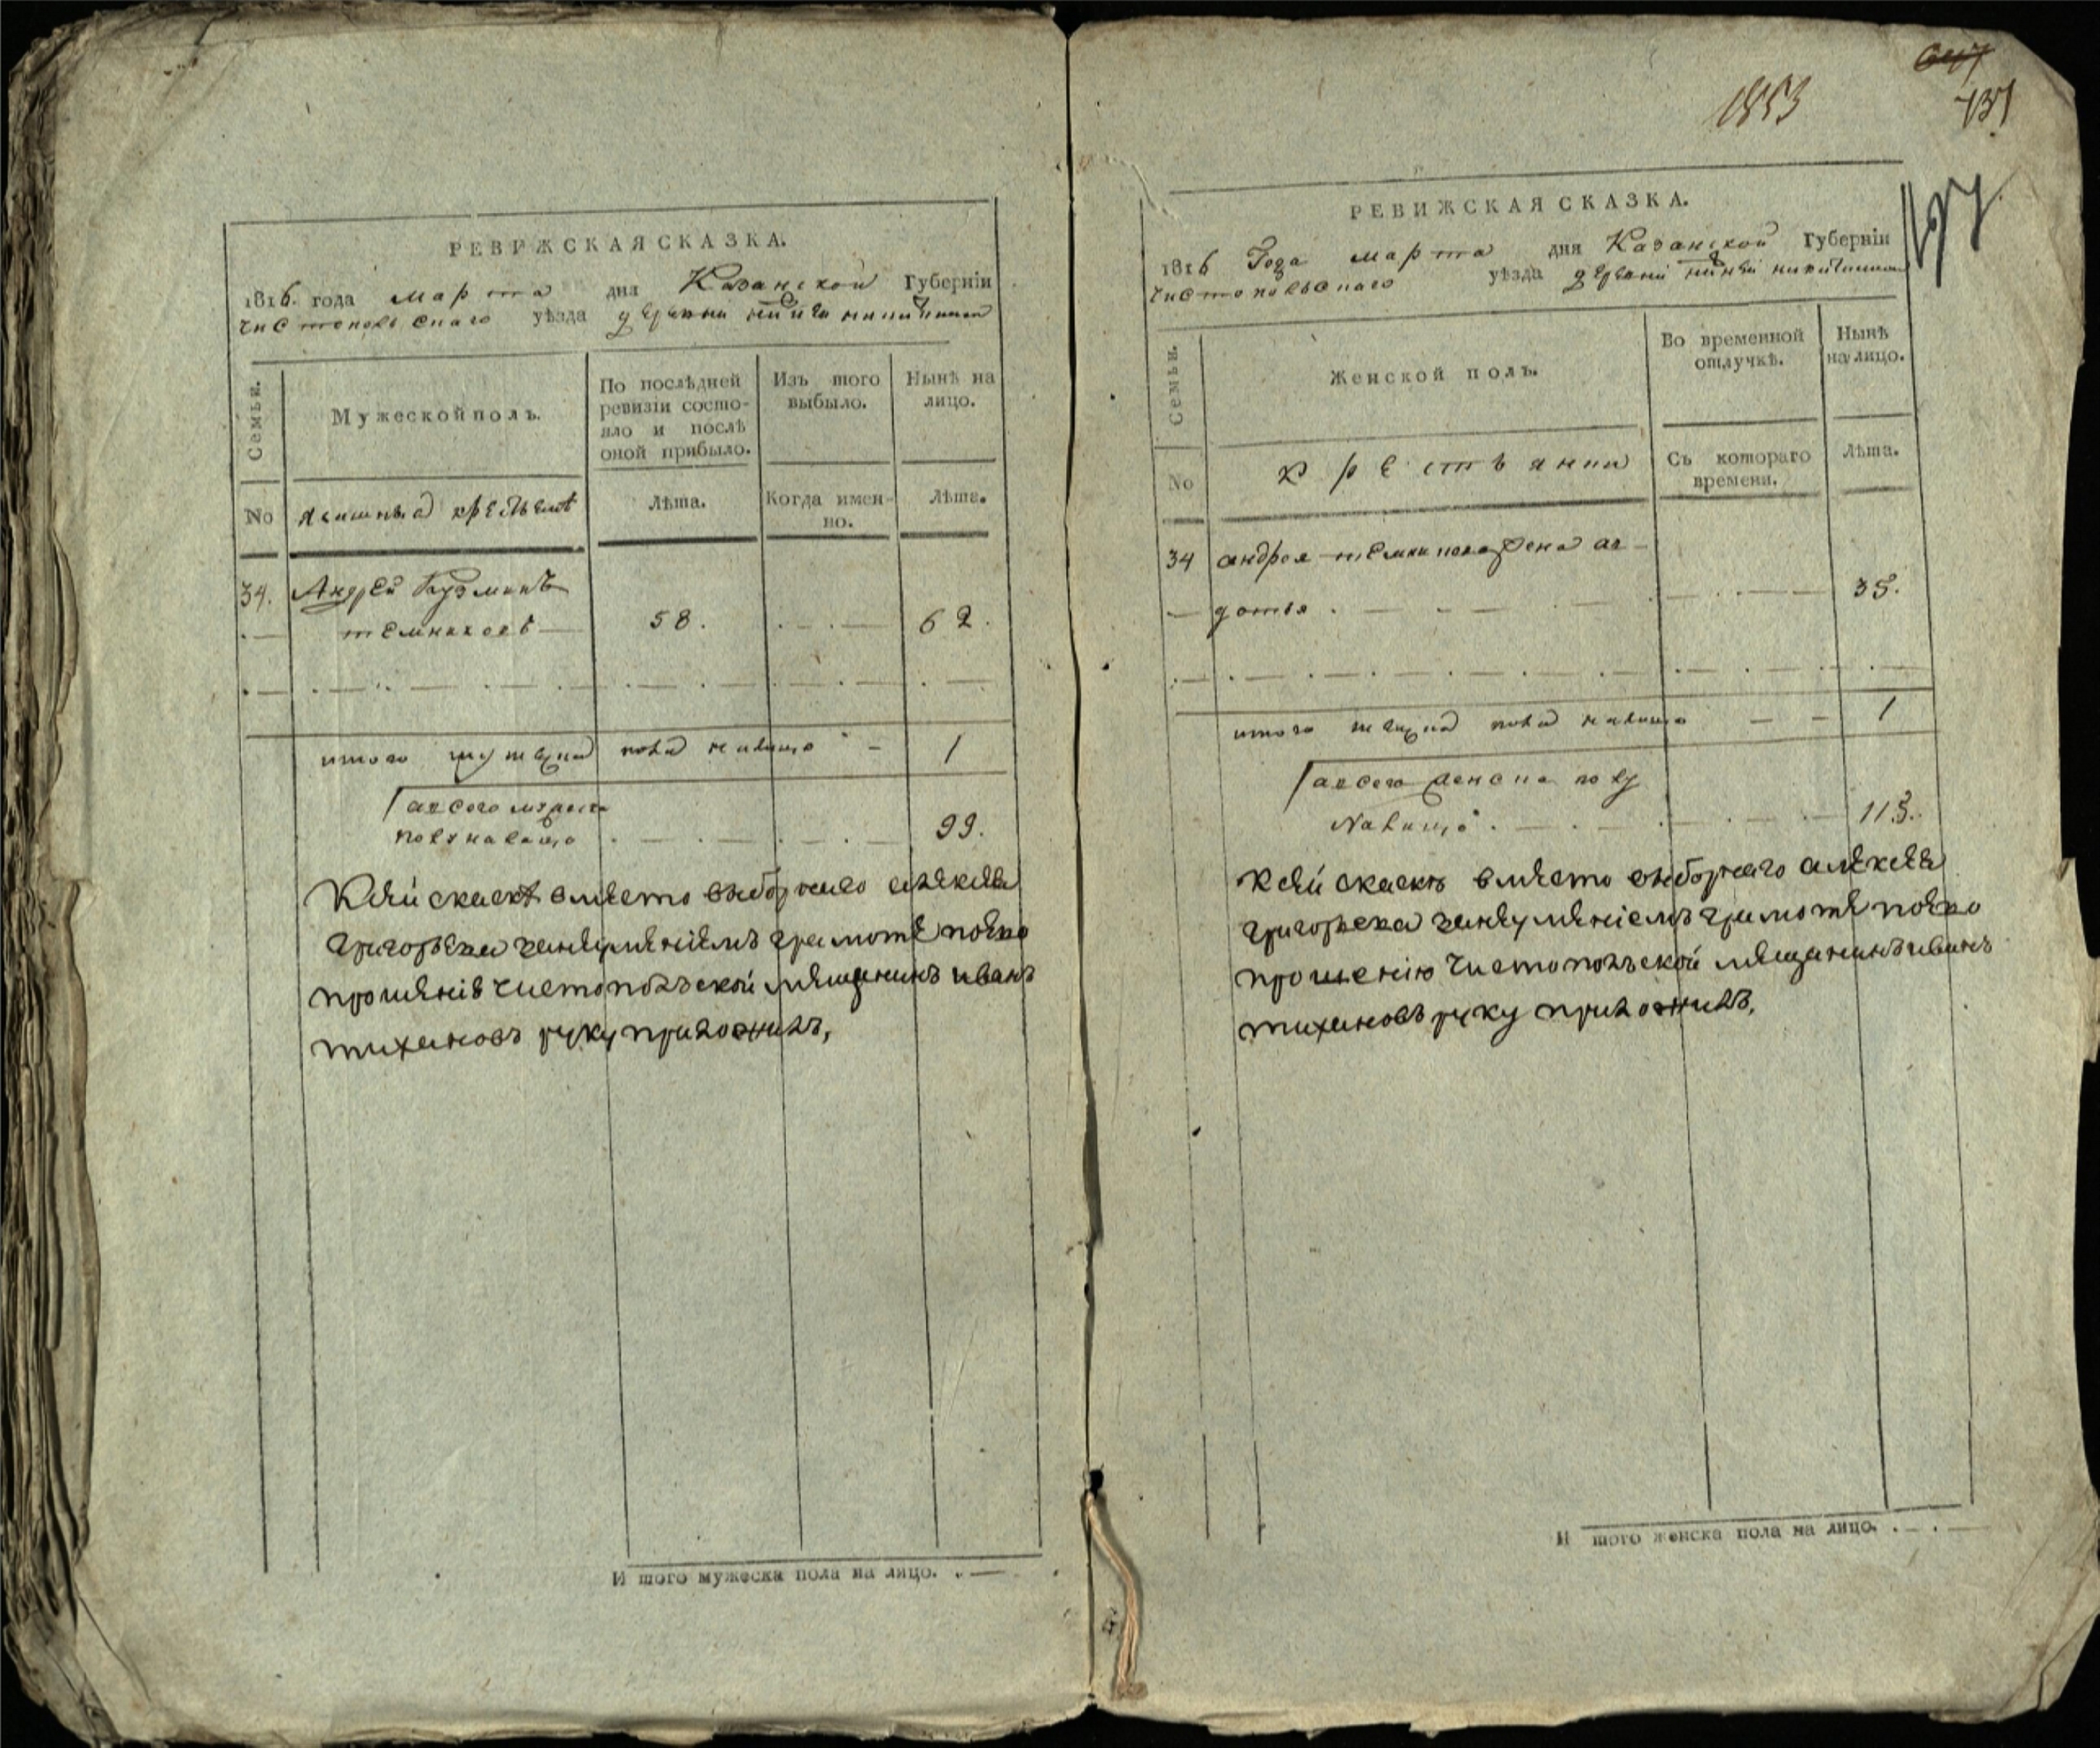 РЕВИЖСКАЯ СКАЗКА.
1816. года марта дня Казанской Губернїи
чистопольскаго уѣзда деревни
Семьи.
Мужеской полъ.
По послѣдней ревизїи состояло и послѣ оной прибыло.
Изъ того выбыло.
Нынѣ на лицо.
No
Лѣта.
Когда именно.
Лѣта.
34. Андрей Кузминъ
темниковъ 58. 62.
итого мужеска пола налицо 1
а всего мужеска
полу налицо 99.
К сей скаскѣ вместо выборнаго алексея
григорьева занеумениемъ грамоте поево
прошению чистопольской мещанинъ иванъ
тихановъ руку приложилъ,
И того мужеска пола на лицо.
1853
737
РЕВИЖСКАЯ СКАЗКА.
1816 Года марта дня Казанской Губернїи
чистопольскаго уѣзда деревни
Семьи.
Женской полъ.
Во временной отлучкѣ.
Нынѣ на лицо.
No
крестьянки
Съ котораго времени.
Лѣта.
34 андрея темникова жена ав-
дотья 35.
итого женска пола налицо 1
а всего женска полу
Налицо 113.
К сей скаскѣ вместо выборнаго алексея
григорьева занеумениемъ грамоте поево
прошению чистопольской мещанинъ иванъ
тихановъ руку приложилъ,
И того женска пола на лицо.